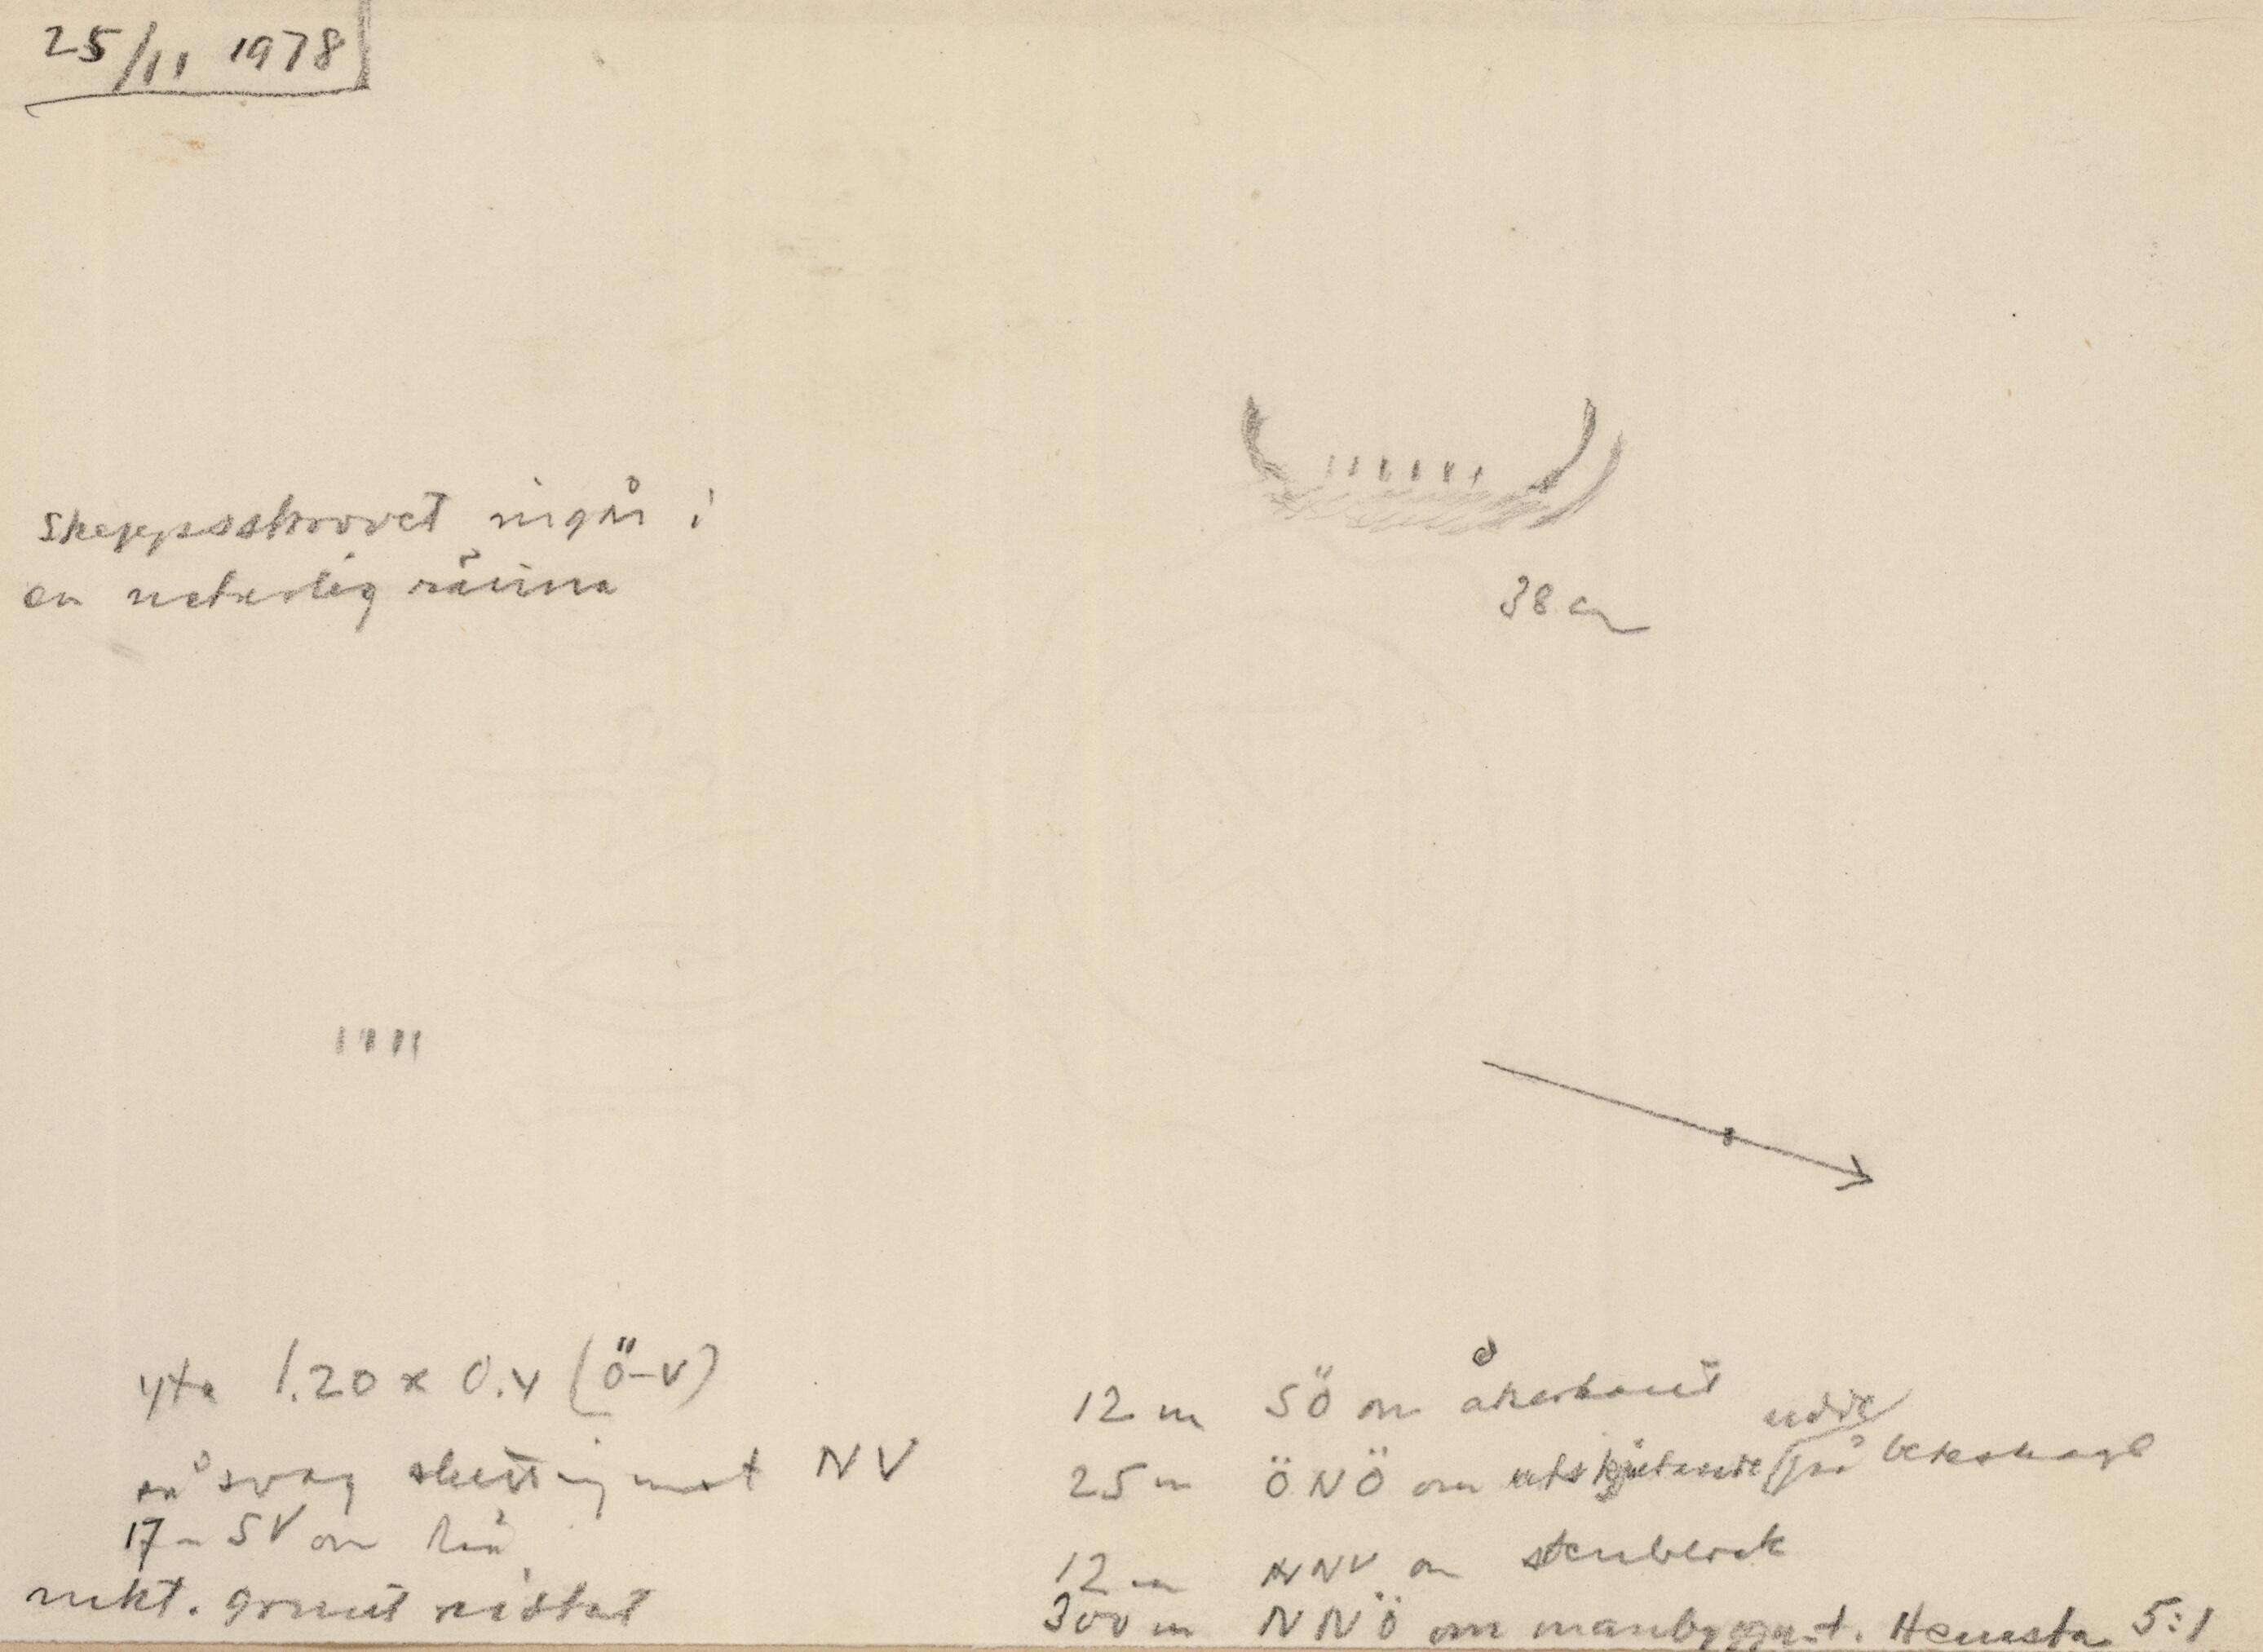 25/11 1978
skeppsskrovet ingår i
en naturlig ränna
38 cm
yta 1.20 x 0.4 (Ö-V)
på svag sluttning mot NV
17 m SV om
mkt. grunt ristat
12 m SÖ om åkerkant
25 m ÖNÖ om utskjutande udde på beteshage
12 m NNV om stenblock
300 m NNÖ om manbyggn.t. Hemsta 5:1